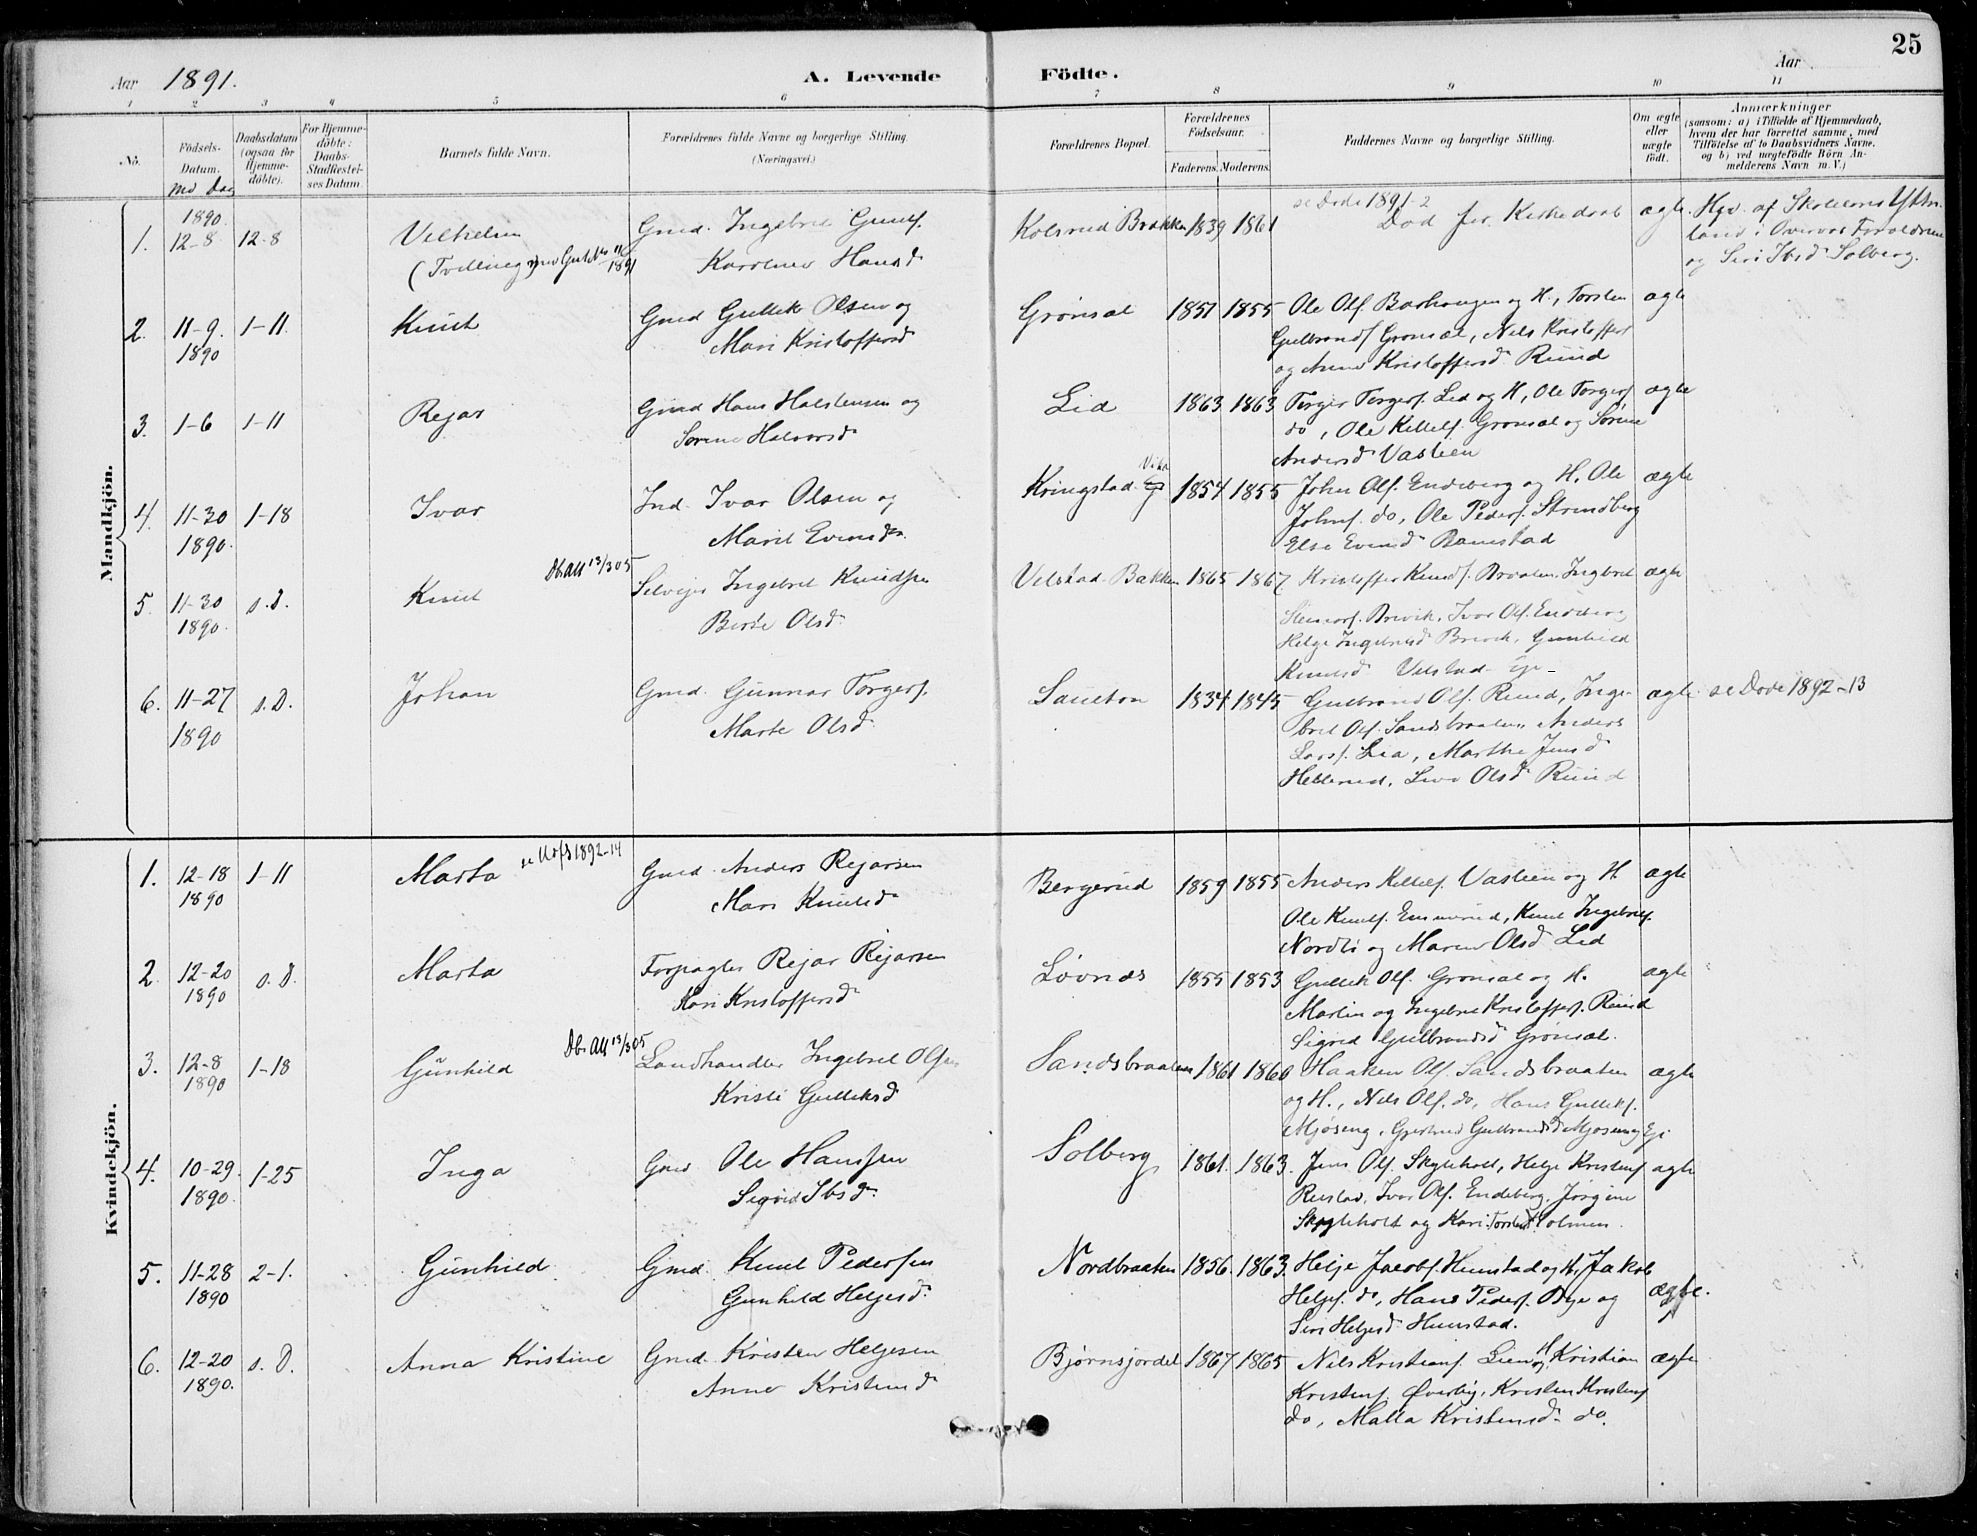 25
Aar 1891. A. Levende Födte. Aar
1 2 3 4 5 6 7 8 9 10 11
No.
Födsels-
Datum.
Md Dag
Daabsdatum
(ogsaa for
Hjemme-
döbte).
For Hjemme-
döbte:
Daabs-
Stadfæstel-
ses Datum.
Barnets fulde Navn.
Forældrenes fulde Navne og borgerlige Stilling.
(Næringsvei.)
Forældrenes Bopæl.
Forældrenes
Födselsaar.
Faderens. Moderens.
Faddernes Navne og borgerlige Stilling.
Om ægte
eller
uægte
födt.
Anmærkninger
(saasom: a) i Tilfælde af Hjemmedaab,
hvem der har forrettet samme, med
Tilföielse af to Daabsvidners Navne,
og b) ved uægtefödte Börn An-
melderens Navn m. V.)
Mandkjön.
1890
1. 12-8 12-8 Vilhelm
(Tvilling med
1891
Gmd. Ingebret
Karoline Hansd
Kolsrud Brakken 1839 1861
se Døde 1891-2
Død før Kirkedaab ægte
Hjd. af Skolelærer
i Overvær Forældrene
og Siri Ibsd Solberg.
2. 11-9 1-11 Knut
1890
Gmd Gullik Olsen og
Mari Kristoffersd
Grønsal 1851 1855 Ole Olf. Barhaugen og H., Torsten
Gulbrandf Grønsal, Nils Kristoffer
og Anne Kristoffersd Ruud
ægte
3. 1-6 1-11 Rejar
Gmd Hans Halstensen og
Sørine Halvorsd
Lid 1863 1863 Torger Torgerf. Lid og H, Ole Torgerf
do, Ole Kittelf. Grønsal og Sørine
Andersd Vaslien
ægte
4. 11-30 1-18 Ivar
1890.
Ind. Ivar Olsen og
Marit Evensd.
Kringstad 1854 1855 John Olf. Endeberg og H. Ole
Johnf. do, Ole Pederf. Strandberg
Else Evensd Ramstad
ægte
5. 11-30 s.D. Knut
1890.
Db. Att 13/3 05
Selvejer Ingebret Knudsen
Berte Olsd
Velstad-Bakken 1865 1867 Kristoffer Knudf. Braaten, Ingebret
Steinarf. Brevik, Ivar Olf. Endeberg
Helge Ingebretsd Brevik, Gunhild
Knutsd Velstad-Eje
ægte
6. 11-27 s.D. Johan
1890
Gmd. Gunnar Torgerf.
Marte Olsd
Saueton 1834 1845 Gulbrand Olf. Ruud, Inge-
bret Olf. Sandsbraaten, Anders
Larsf. Lia, Marthe Jensd
Hellerud, Live Olsd Ruud
ægte se Døde 1892-13
Kvindekjön.
1. 12-18 1-11 Marta
1890
1892-14
Gmd. Anders Rejarsen
Mari Knutsd
Bergerud 1859 1855 Anders Kittelf. Vaslien og H.
Ole Knutf. Emmerud, Knut Ingebretf.
Nordli og Maren Olsd Lid
ægte
2. 12-20 s.D. Marta
1890
Forpagter Rejar Rejarsen
Kari Kristoffersd
Løvnes 1855 1853 Gullik Olf. Grønsal og H.
Martin og Ingebret Kristofferf. Ruud
Sigrid Gulbrandsd Grønsal.
ægte
3. 12-8 1-18 Gunhild
1890
Db. Att 13/3 05
Landhandler Ingebret Olsen
Kristi Gulliksd
Sandsbraaten 1861 1860 Haaken Olf. Sandsbraaten
og H., Nils Olf. do, Hans Gullikf.
Mjøseng, Gjertrud Gulbrandsd Mjøseng Eje
ægte
4. 10-29. 1-25 Inga
1890.
Gmd Ole Hansen
Sigrid Ibsd
Solberg 1861. 1863. Jens Olf. Skytleholt, Helge Kristenf
Rustad, Ivar Olf. Endeberg, Jørgine
Skytleholt og Kari Torstensd Holmen.
ægte
5. 11-28 2-1. Gunhild
1890
Gmd. Knut Pedersen
Gunhild Helgesd.
Nordbraaten 1856. 1863. Helge Jacobf. Hunstad og H, Jakob
Helgef. do, Hans Pederf. Bye og
Siri Helgesd Hunstad.
ægte.
6. 12-20 s.D. Anna Kristine
1890.
Gmd. Kristen Helgesen
Anne Kristensd
Bjørnsjordet 1867 1865 Nils Kristianf. Lien og H, Kristian
Kristenf. Øverby, Kristen Kristenf
do, Malla Kristensd do.
ægte